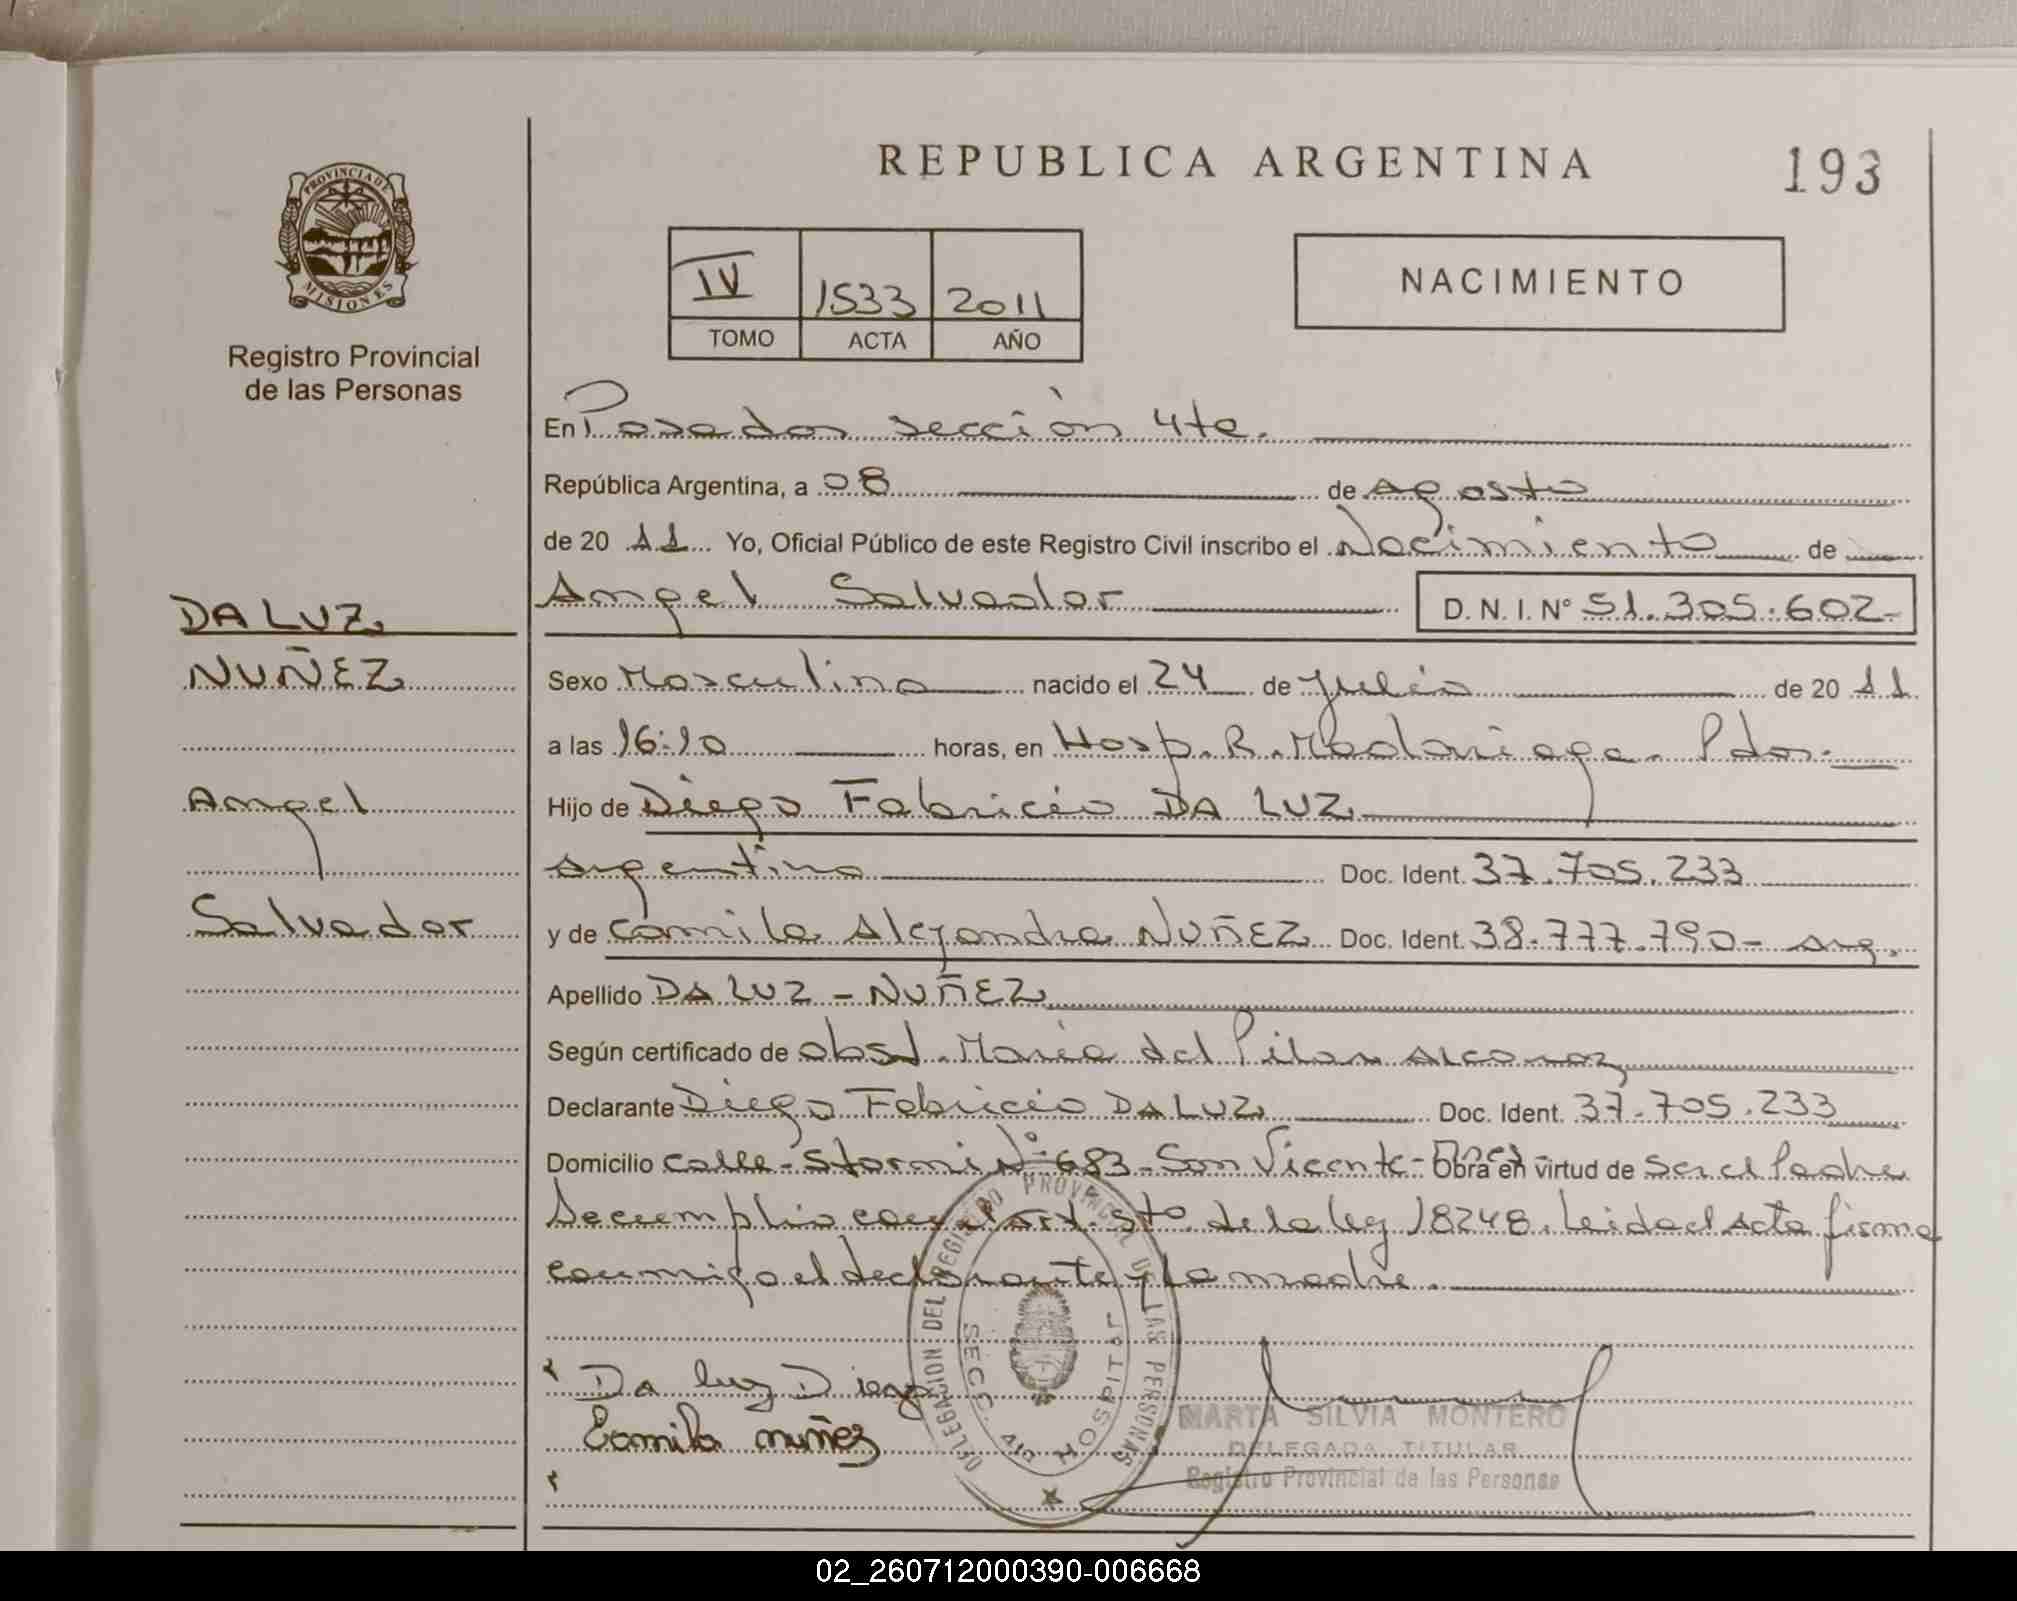 REPUBLICA ARGENTINA
193
PROVINCIA DE
MISIONES
Registro Provincial
de las Personas
IV 1533 2011
TOMO ACTA AÑO
NACIMIENTO
En Posadas sección 4ta.
República Argentina, a 08 de Agosto
de 20 11 Yo, Oficial Público de este Registro Civil inscribo el Nacimiento de
Angel Salvador D. N. I. Nº 51.305.602-
DA LUZ
NUÑEZ
Angel
Salvador
Sexo Masculino nacido el 24 de Julio de 20 11
a las 16:10 horas, en Hosp. R. Madariaga. Pdas.
Hijo de Diego Fabricio DA LUZ
Argentino Doc. Ident. 37.705.233
y de Camila Alejandra NUÑEZ Doc. Ident. 38.777.790- Arg.
Apellido DA LUZ - NUÑEZ
Según certificado de obst. María del Pilar Alcaraz
Declarante Diego Fabricio DA LUZ Doc. Ident. 37.705.233
Domicilio calle Stormi Nº 683 - San Vicente - Obra en virtud de ser el Padre
Se cumplio con el art. 5to de la ley 18248. Leida el Acta firma
conmigo el declarante y la madre.
Da luz Diego
Camila nuñez
DELEGACION DEL REGISTRO PROVINCIAL DE LAS PERSONAS
SECC. 4ta HOSPITAL
MARTA SILVIA MONTERO
DELEGADA TITULAR
Registro Provincial de las Personas
02_260712000390-006668